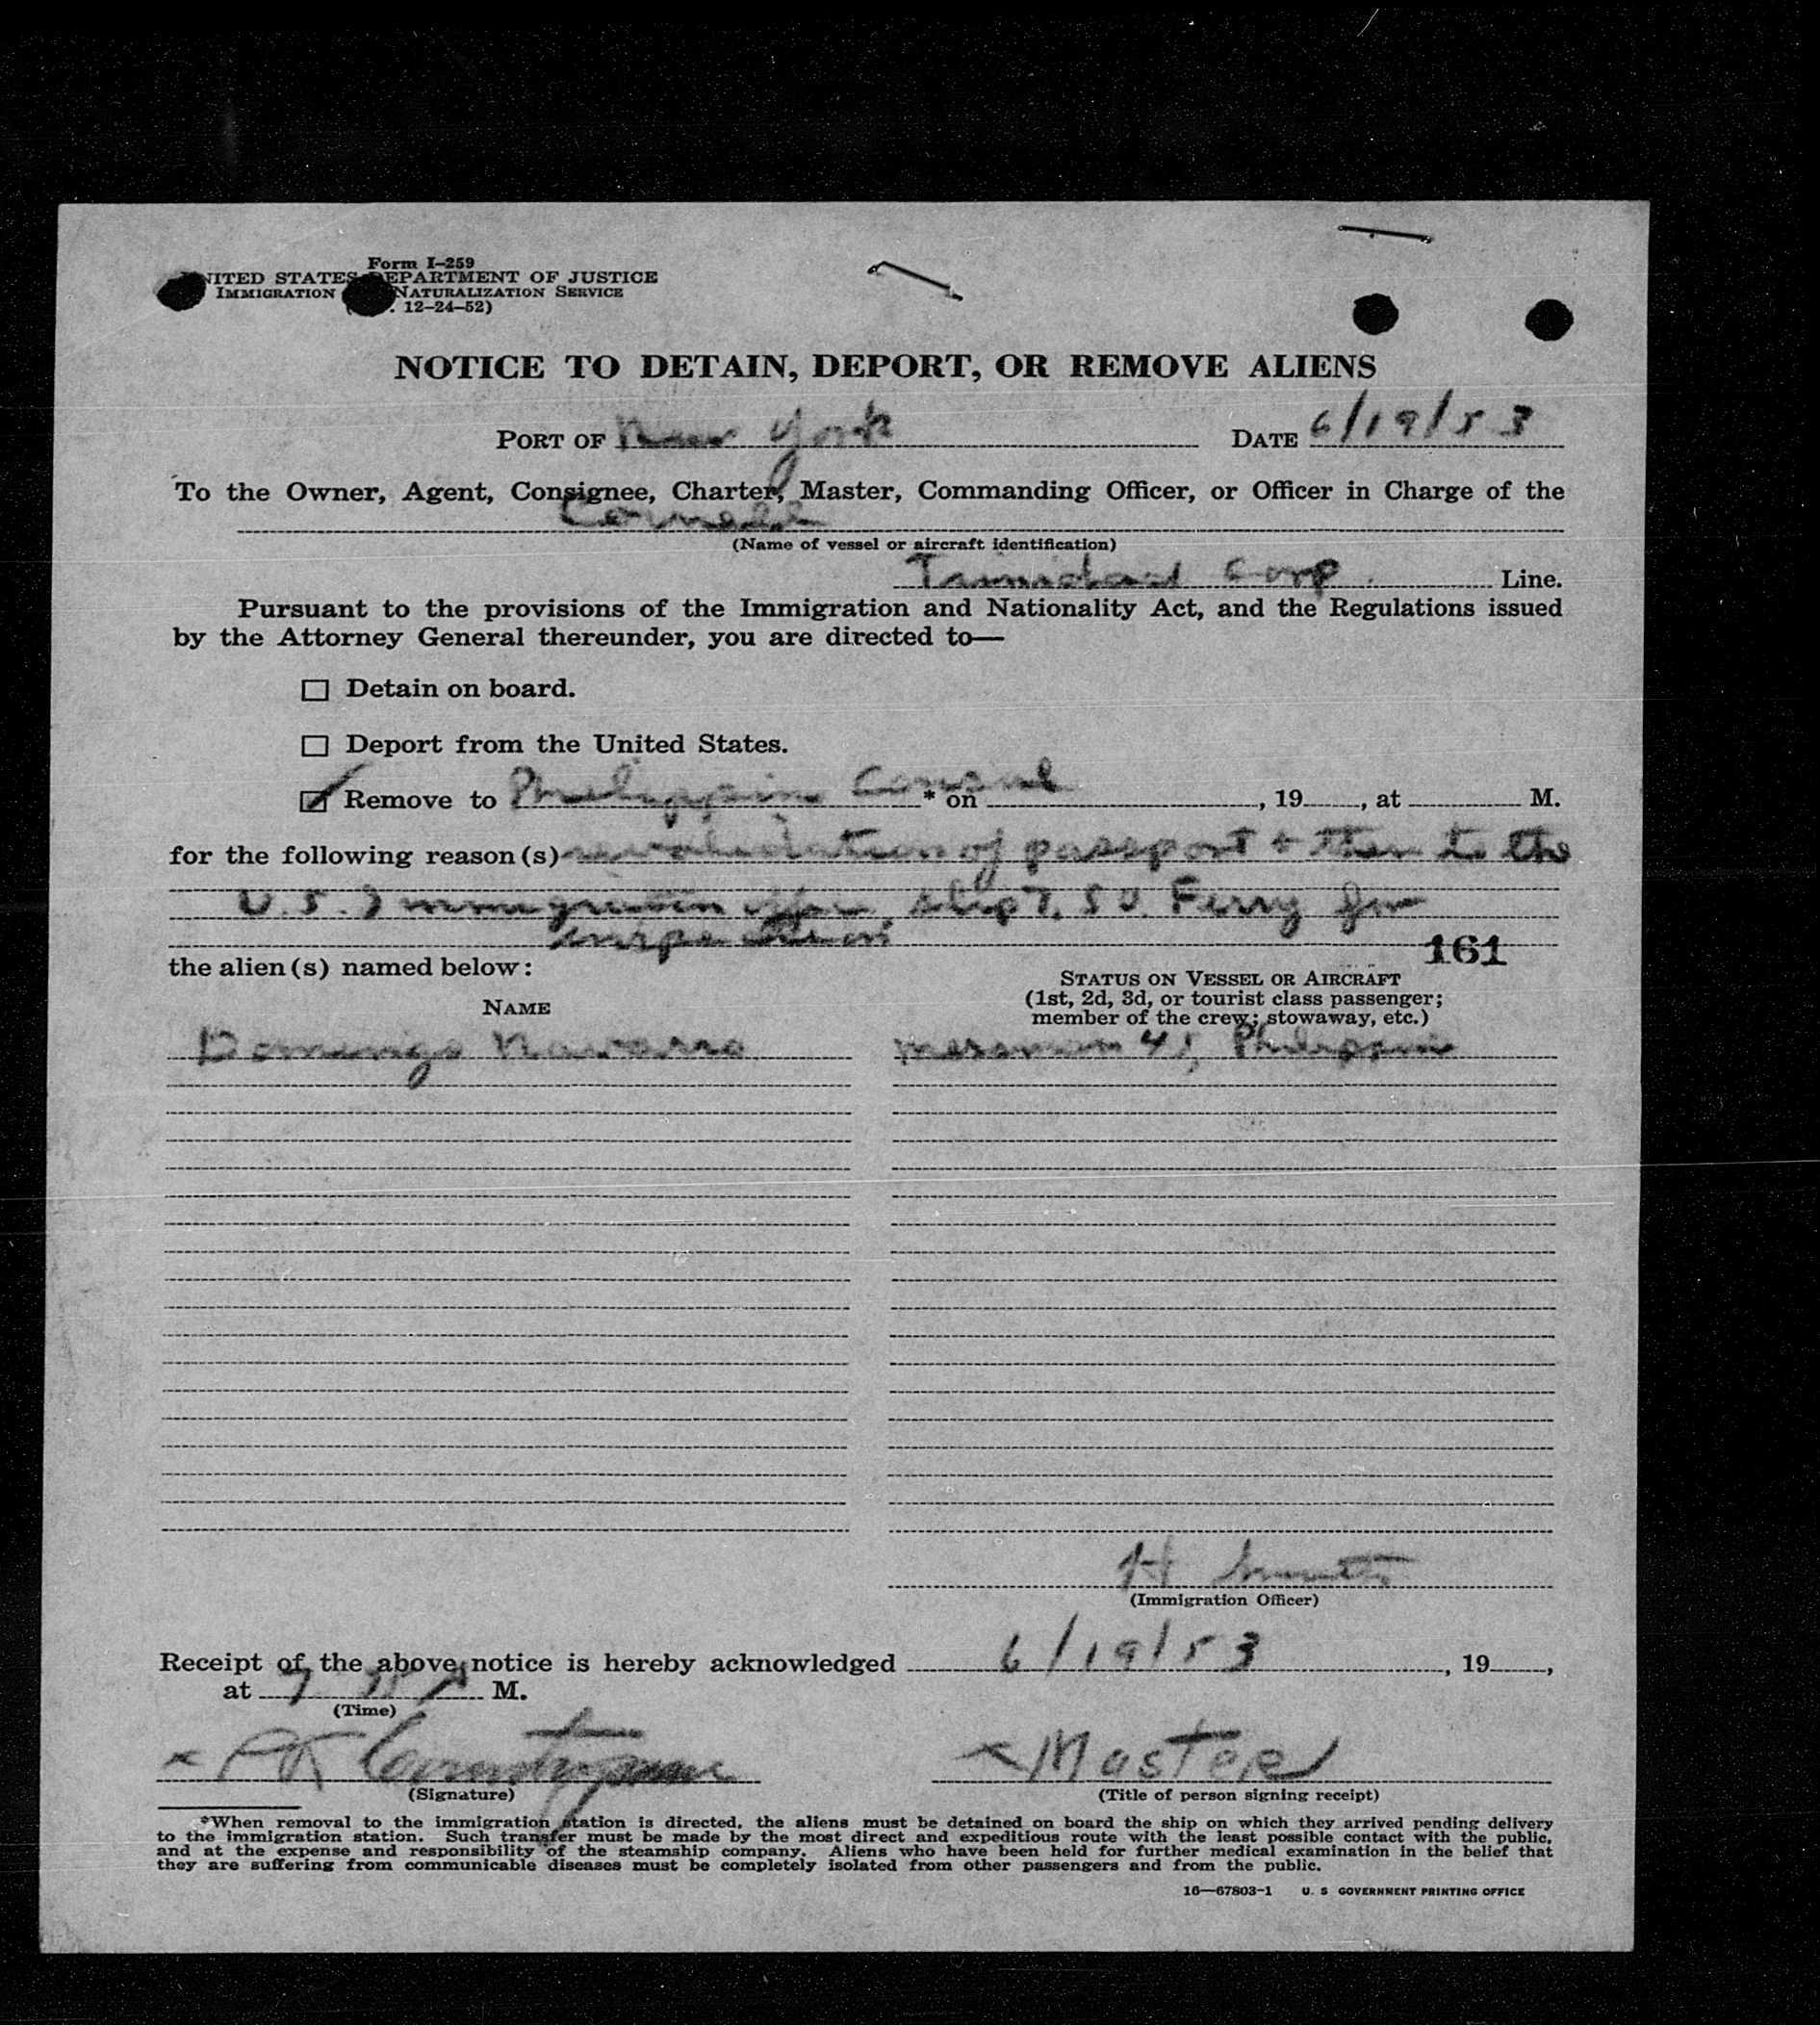 Form I-259
UNITED STATES DEPARTMENT OF JUSTICE
IMMIGRATION NATURALIZATION SERVICE
12-24-52)
NOTICE TO DETAIN, DEPORT, OR REMOVE ALIENS
PORT OF New York DATE 6/19/53
To the Owner, Agent, Consignee, Charter, Master, Commanding Officer, or Officer in Charge of the
Cornell
(Name of vessel or aircraft identification)
Trinidad Corp. Line.
Pursuant to the provisions of the Immigration and Nationality Act, and the Regulations issued
by the Attorney General thereunder, you are directed to—
☐ Detain on board.
☐ Deport from the United States.
☑ Remove to Philippine Consul * on , 19 , at M.
for the following reason(s) revalidation of passport + then to the
U.S. Immigration office, slip 7, S.U. Ferry for
inspection
161
the alien(s) named below:
STATUS ON VESSEL OR AIRCRAFT
NAME
(1st, 2d, 3d, or tourist class passenger;
member of the crew; stowaway, etc.)
Domingo Navarro messman 45 Philippine
H
(Immigration Officer)
Receipt of the above notice is hereby acknowledged 6/19/53 , 19 ,
at 7 M.
(Time)
x x Master
(Signature) (Title of person signing receipt)
*When removal to the immigration station is directed, the aliens must be detained on board the ship on which they arrived pending delivery
to the immigration station. Such transfer must be made by the most direct and expeditious route with the least possible contact with the public,
and at the expense and responsibility of the steamship company. Aliens who have been held for further medical examination in the belief that
they are suffering from communicable diseases must be completely isolated from other passengers and from the public.
16—67803-1 U. S GOVERNMENT PRINTING OFFICE